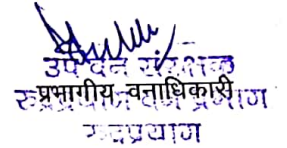 उप वन संरक्षक
प्रभागीय वनाधिकारी
रूद्रप्रयाग वन प्रभाग
रूद्रप्रयाग